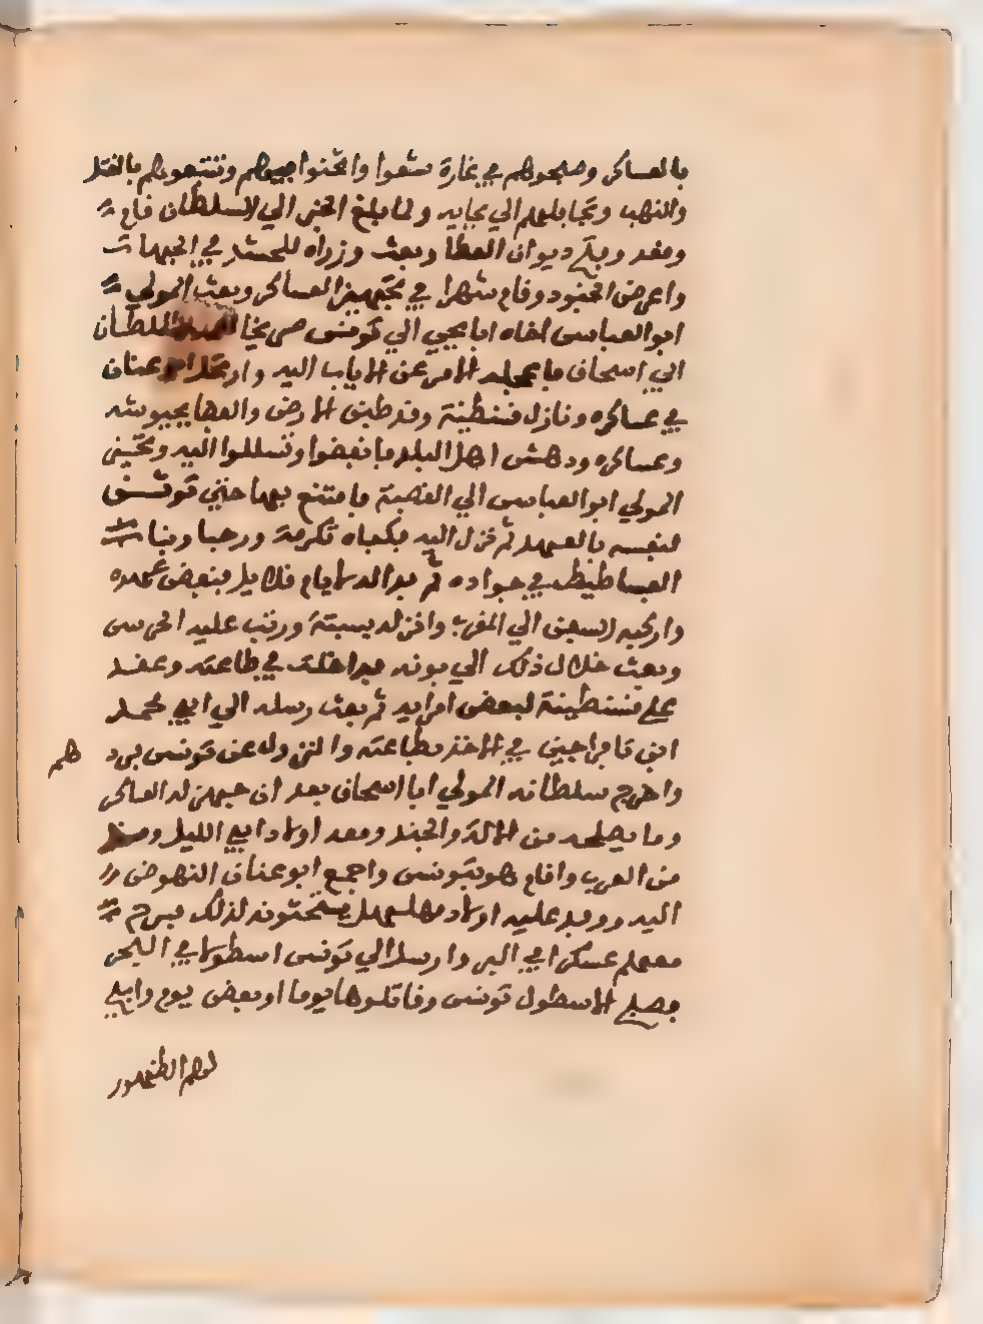 بالعساكر وصبحوهم في غارة شعوا واثخنوا فيهم وتتبعوهم بالقتل
والنهب وتجا بلهم الي بجايه ولما بلغ الخبر الي السلطان قام
وقعد وفتح ديوان العطا وبعث وزراه للحشد في الجهات
واعرض الجنود وقام شهرا في تجهيز العساكر وبعث المولي
ابو العباس اخاه ابا يحيي الي تونس صريخا السلطان
ابي اسحاق فاعجله الامر عن الاياب اليه وارتحل ابو عنان
في عساكره ونازل قسنطينة وقد طبق الارض والفضا بجيوشه
وعساكره ودهش اهل البلد فانفضوا وتسللوا اليه وتحيز
المولي ابو العباس الي القصبة فامتنع بها حتي توثق
لنفسه بالعهد ثم نزل اليه فكفاه تكرمة ورحبا وبنا
الفساطيط في جواره ثم بدا له لايام قلايل فنقض عهده
واركبه السفن الي المغرب وانزله بسبتة ورتب عليه الحرس
وبعث خلال ذلك الي بونه فدخلت في طاعته وعقد
علي قسنطينة لبعض امرايه ثم بعث رسله الي ابي محمد
ابن تافراجين في الاخذ بطاعته والنزول له عن تونس فرد
هم
واخرج سلطانه المولي ابا اسحاق بعد ان جهز له العساكر
وما يصلحه من الالة والجند ومعه اولاد ابي الليل
من العرب واقام هو بتونس واجمع ابو عنان النهوض
اليه ووفد عليه اولاد مهلهل يستحثونه لذلك فسرح
معهم عسكرا في البر وارسل الي تونس اسطولا في البحر
فصبح الاسطول تونس وقاتلوها يوما او بعض يوم واتيح
لهم الظهور